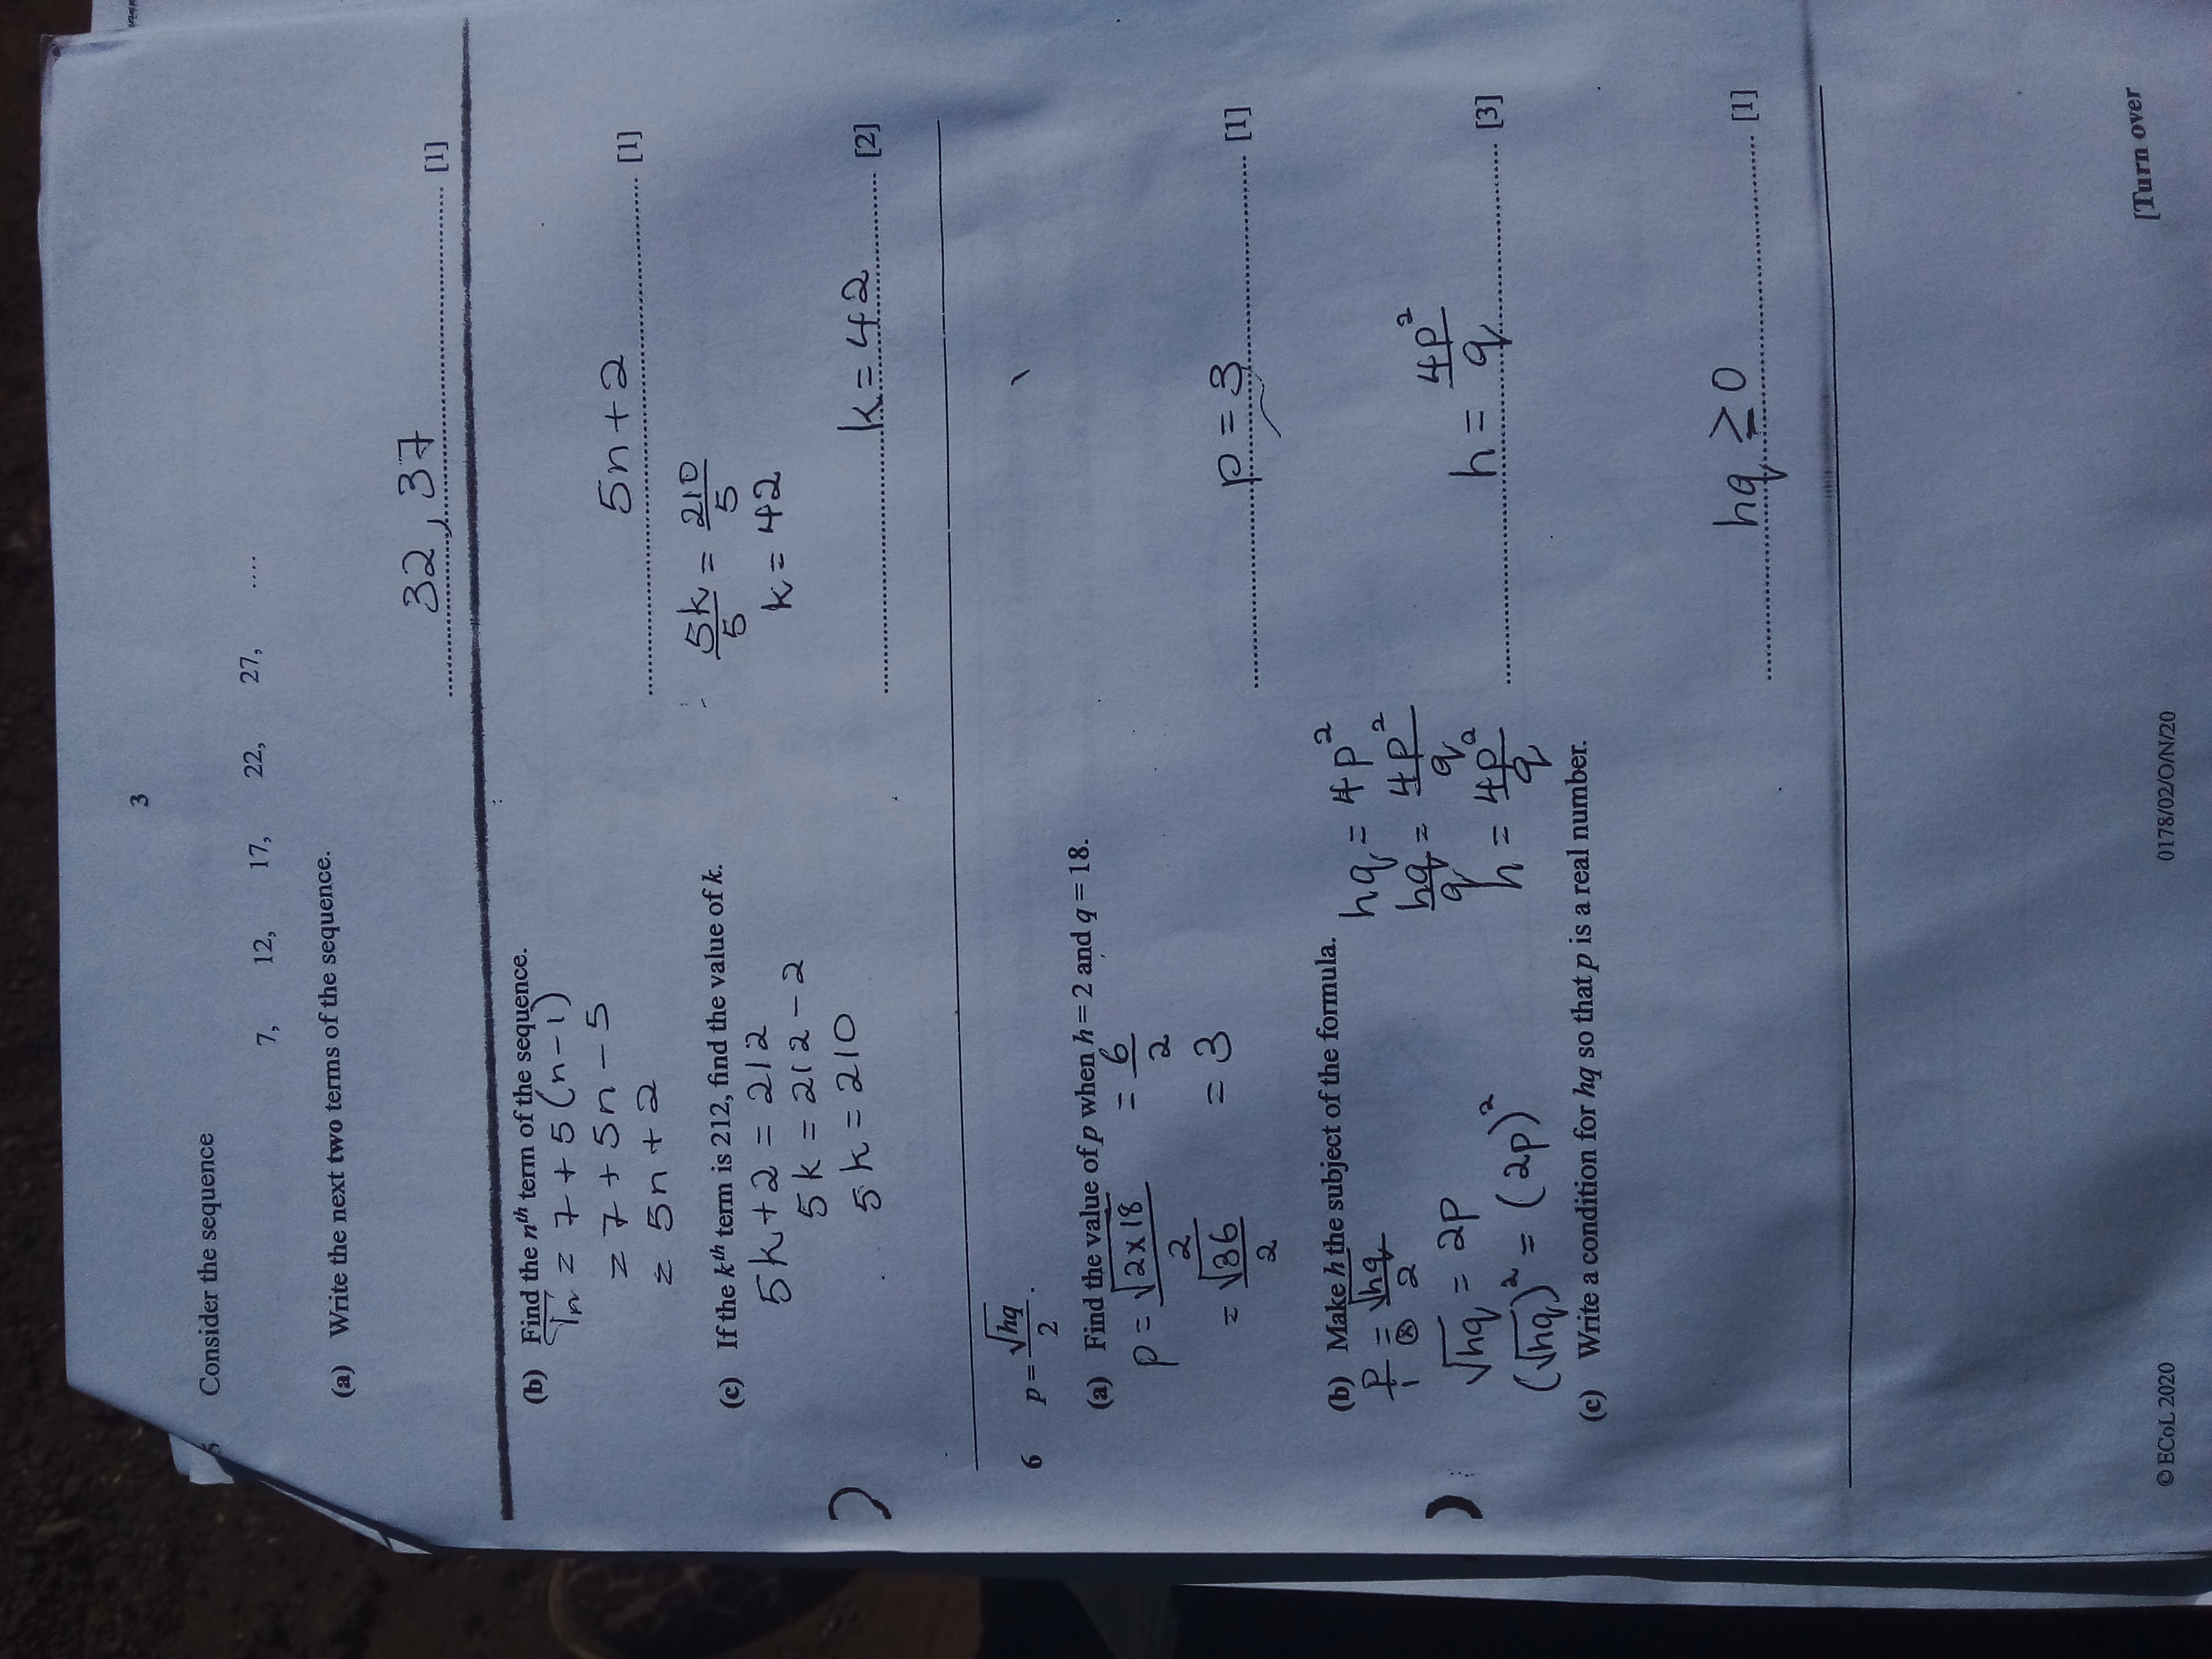 3
5 Consider the sequence
7, 12, 17, 22, 27, ....
(a) Write the next two terms of the sequence.
32, 37 [1]
(b) Find the nth term of the sequence.
Tn = 7 + 5(n-1)
= 7 + 5n - 5
= 5n + 2
5n + 2 [1]
(c) If the kth term is 212, find the value of k.
5k + 2 = 212
5k = 212 - 2
5k = 210
5k/5 = 210/5
k = 42
k = 42 [2]
6 p = √hq/2.
(a) Find the value of p when h = 2 and q = 18.
p = √2×18/2
= √36/2
= 6/2
= 3
p = 3 [1]
(b) Make h the subject of the formula.
p/1 = √hq/2
√hq = 2p
(√hq)² = (2p)²
hq = 4p²
hq/q = 4p²/q
h = 4p²/q
h = 4p²/q [3]
(c) Write a condition for hq so that p is a real number.
hq ≥ 0 [1]
© ECoL 2020 0178/02/O/N/20 [Turn over